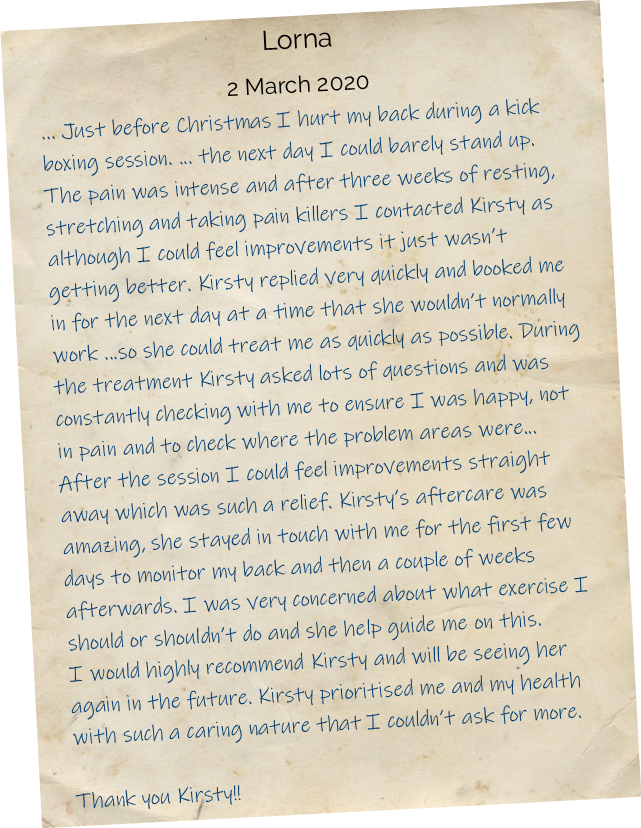 Lorna
2 March 2020
... Just before Christmas I hurt my back during a kick
boxing session. ... the next day I could barely stand up.
The pain was intense and after three weeks of resting,
stretching and taking pain killers I contacted Kirsty as
although I could feel improvements it just wasn't
getting better. Kirsty replied very quickly and booked me
in for the next day at a time that she wouldn't normally
work ...so she could treat me as quickly as possible. During
the treatment Kirsty asked lots of questions and was
constantly checking with me to ensure I was happy, not
in pain and to check where the problem areas were...
After the session I could feel improvements straight
away which was such a relief. Kirsty's aftercare was
amazing, she stayed in touch with me for the first few
days to monitor my back and then a couple of weeks
afterwards. I was very concerned about what exercise I
should or shouldn't do and she help guide me on this.
I would highly recommend Kirsty and will be seeing her
again in the future. Kirsty prioritised me and my health
with such a caring nature that I couldn't ask for more.
Thank you Kirsty!!